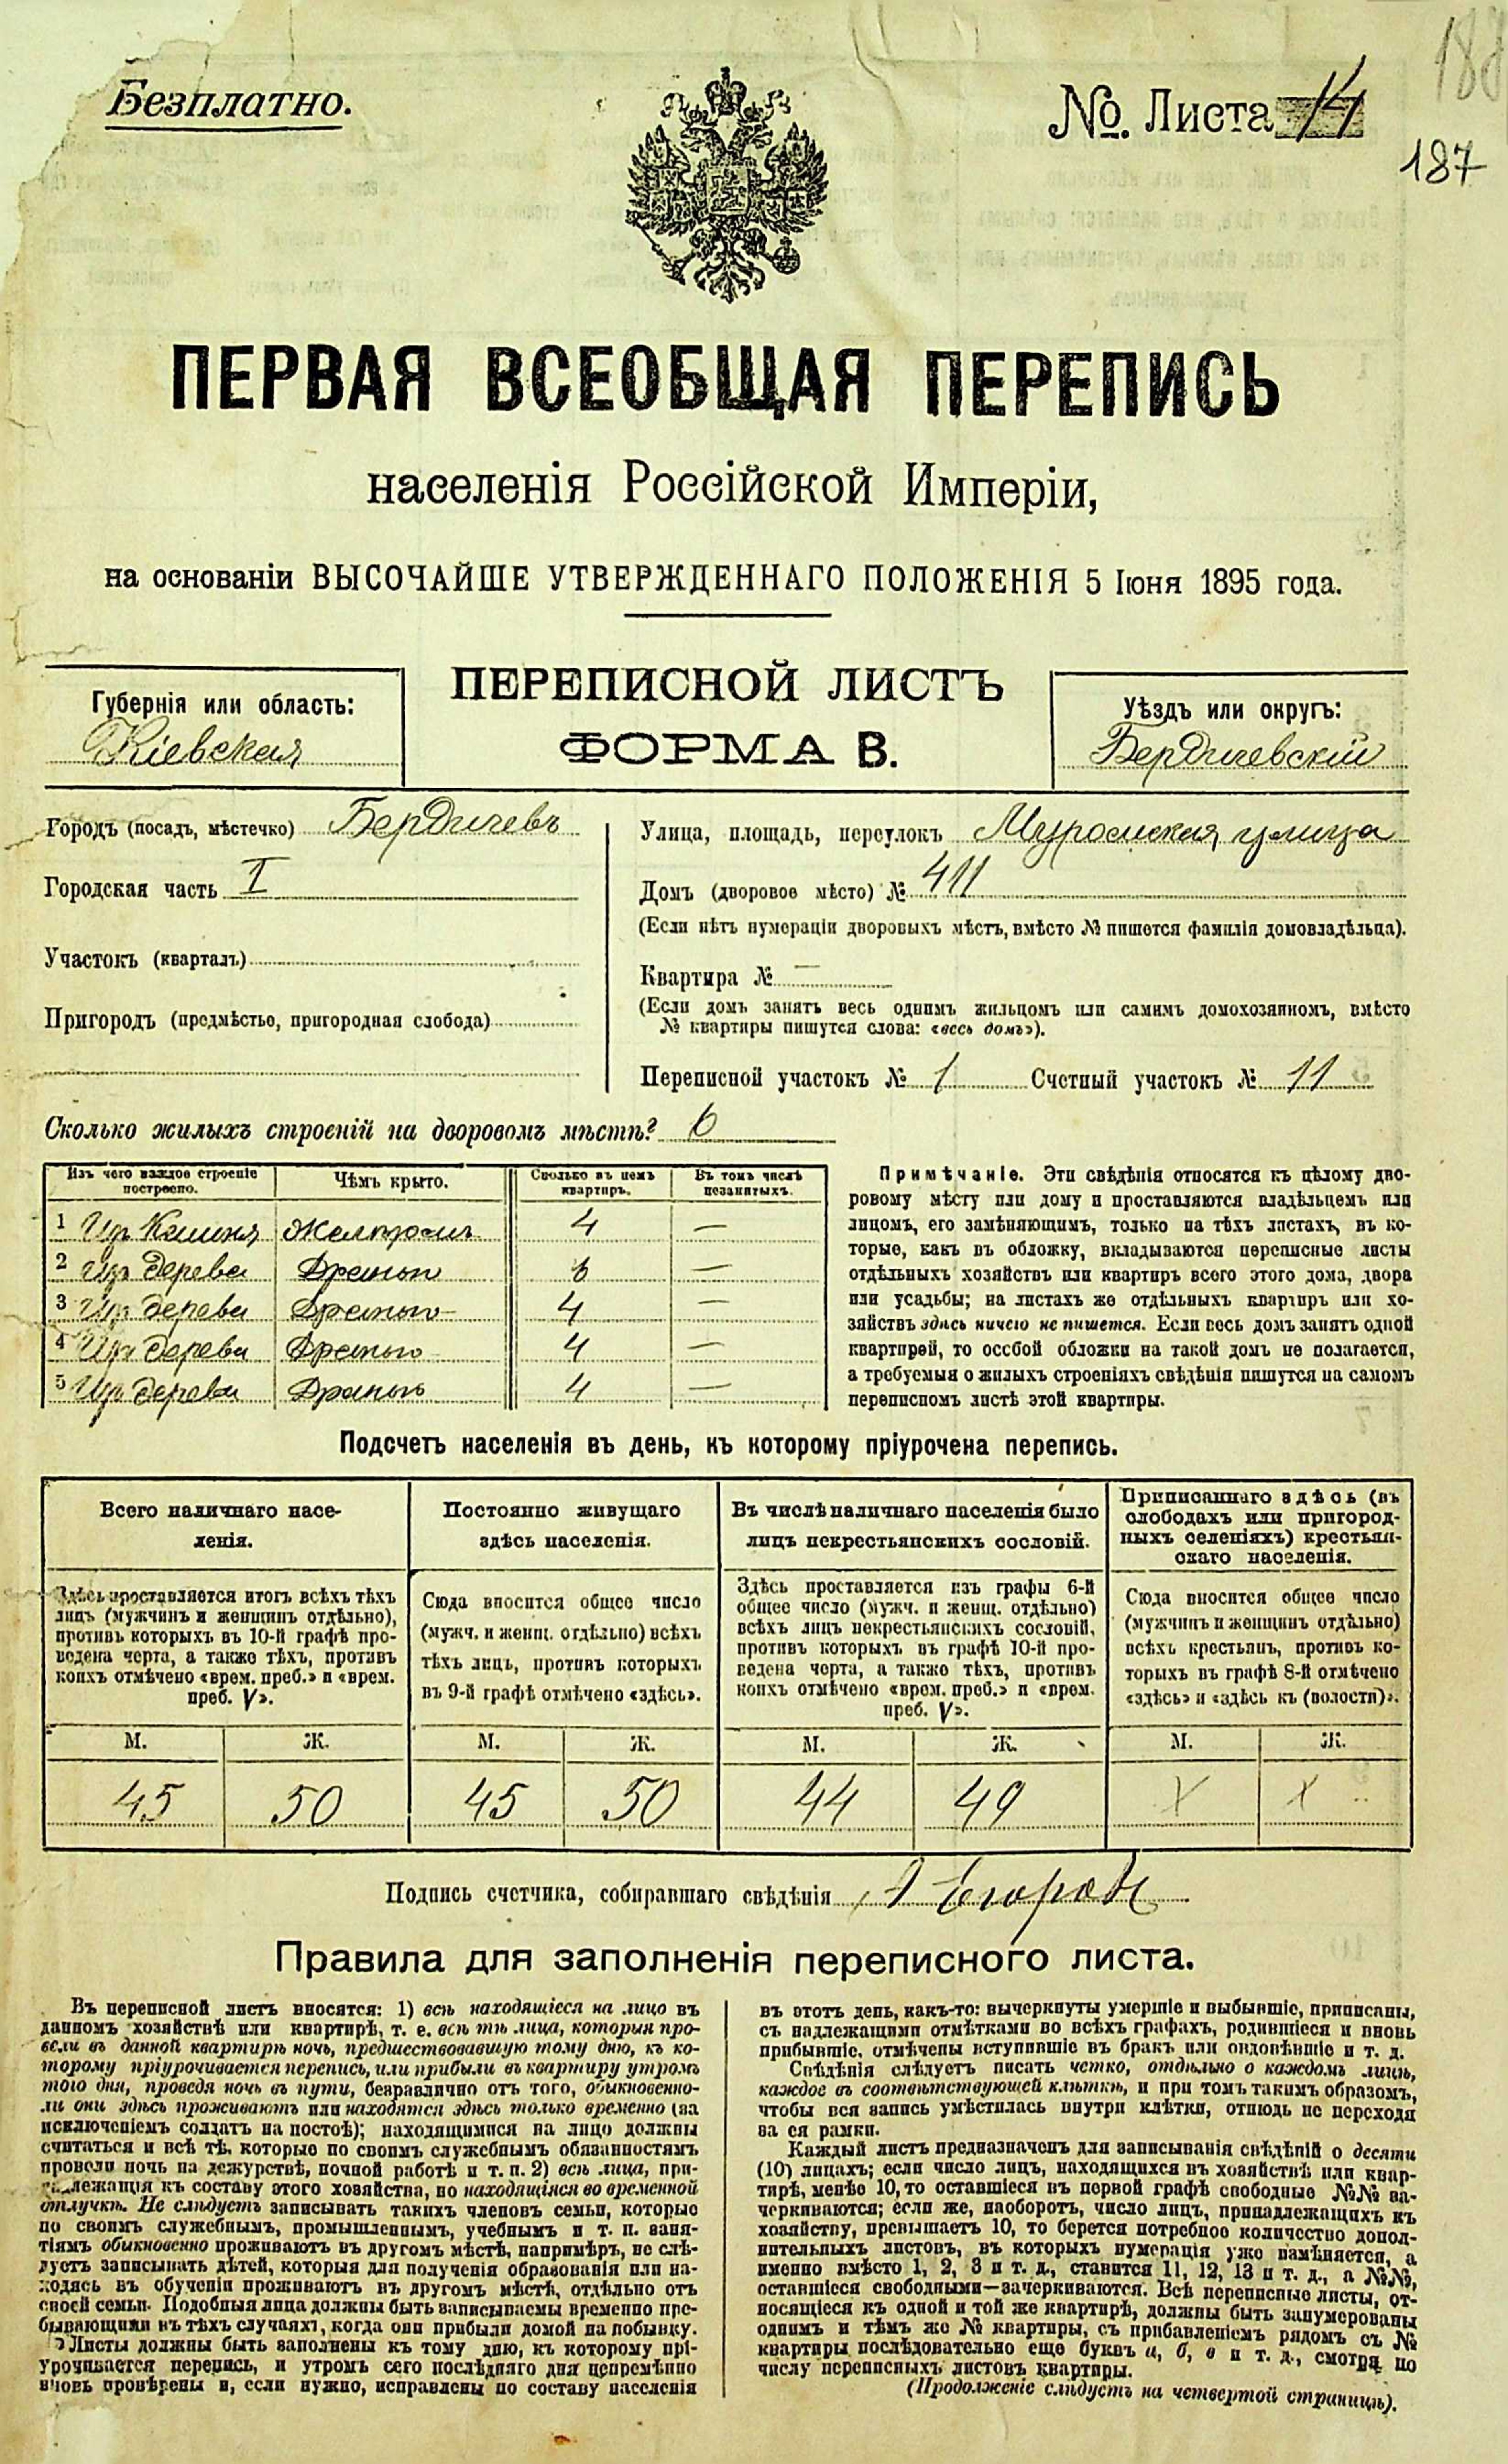 188
Безплатно.
№. Листа 14
187
ПЕРВАЯ ВСЕОБЩАЯ ПЕРЕПИСЬ
населенія Россійской Имперіи,
на основаніи ВЫСОЧАЙШЕ УТВЕРЖДЕННАГО ПОЛОЖЕНІЯ 5 Іюня 1895 года.
Губернія или область:
Кіевская
ПЕРЕПИСНОЙ ЛИСТЪ
ФОРМА В.
Уѣздъ или округъ:
Бердичевскій
Городъ (посадъ, мѣстечко) Бердичевъ
Городская часть I
Участокъ (кварталъ)
Пригородъ (предмѣстье, пригородная слобода)
Улица, площадь, переулокъ улица
Домъ (дворовое мѣсто) № 411
(Если нѣтъ нумераціи дворовыхъ мѣстъ, вмѣсто № пишется фамилія домовладѣльца).
Квартира № —
(Если домъ занятъ весь однимъ жильцомъ или самимъ домохозяиномъ, вмѣсто
№ квартиры пишутся слова: «весь домъ»).
Переписной участокъ № 1 Счетный участокъ № 11
Сколько жилыхъ строеній на дворовомъ мѣстѣ? 6
Изъ чего каждое строеніе построено. Чѣмъ крыто. Сколько въ немъ квартиръ. Въ томъ числѣ незанятыхъ.
1 Изъ Камня 4 —
2 Изъ дерева Дранью 6 —
3 Изъ дерева Дранью 4 —
4 Изъ дерева Дранью 4 —
5 Изъ дерева Дранью 4 —
Примѣчаніе. Эти свѣдѣнія относятся къ цѣлому дво-
ровому мѣсту или дому и проставляются владѣльцемъ или
лицомъ, его замѣняющимъ, только на тѣхъ листахъ, въ ко-
торые, какъ въ обложку, вкладываются переписные листы
отдѣльныхъ хозяйствъ или квартиръ всего этого дома, двора
или усадьбы; на листахъ же отдѣльныхъ квартиръ или хо-
зяйствъ здѣсь ничего не пишется. Если весь домъ занятъ одной
квартирей, то особой обложки на такой домъ не полагается,
а требуемыя о жилыхъ строеніяхъ свѣдѣнія пишутся на самомъ
переписномъ листѣ этой квартиры.
Подсчетъ населенія въ день, къ которому пріурочена перепись.
Всего наличнаго насе-
ленія.
Здѣсь проставляется итогъ всѣхъ тѣхъ
лицъ (мужчинъ и женщинъ отдѣльно),
противъ которыхъ въ 10-й графѣ про-
ведена черта, а также тѣхъ, противъ
коихъ отмѣчено «врем. преб.» и «врем.
преб. V».
М. Ж.
45 50
Постоянно живущаго
здѣсь населенія.
Сюда вносится общее число
(мужч. и женщ. отдѣльно) всѣхъ
тѣхъ лицъ, противъ которыхъ
въ 9-й графѣ отмѣчено «здѣсь».
М. Ж.
45 50
Въ числѣ наличнаго населенія было
лицъ некрестьянскихъ сословій.
Здѣсь проставляется изъ графы 6-й
общее число (мужч. и женщ. отдѣльно)
всѣхъ лицъ некрестьянскихъ сословій,
противъ которыхъ въ графѣ 10-й про-
ведена черта, а также тѣхъ, противъ
коихъ отмѣчено «врем. преб.» и «врем.
преб. V».
М. Ж.
44 49
Приписаннаго здѣсь (въ
слободахъ или пригород-
ныхъ селеніяхъ) крестьян-
скаго населенія.
Сюда вносится общее число
(мужчинъ и женщинъ отдѣльно)
всѣхъ крестьянъ, противъ ко-
торыхъ въ графѣ 8-й отмѣчено
«здѣсь» и «здѣсь къ (волости)».
М. Ж.
X X
Подпись счетчика, собиравшаго свѣдѣнія
Правила для заполненія переписного листа.
Въ переписной листъ вносятся: 1) всѣ находящіеся на лицо въ
данномъ хозяйствѣ или квартирѣ, т. е. всѣ тѣ лица, которыя про-
вели въ данной квартирѣ ночь, предшествовавшую тому дню, къ ко-
торому пріурочивается перепись, или прибыли въ квартиру утромъ
того дня, проведя ночь въ пути, безразлично отъ того, обыкновенно-
ли они здѣсь проживаютъ или находятся здѣсь только временно (за
исключеніемъ солдатъ на постоѣ); находящимися на лицо должны
считаться и всѣ тѣ, которые по своимъ служебнымъ обязанностямъ
провели ночь на дежурствѣ, ночной работѣ и т. п. 2) всѣ лица, при-
надлежащія къ составу этого хозяйства, но находящіяся во временной
отлучкѣ. Не слѣдуетъ записывать такихъ членовъ семьи, которые
по своимъ служебнымъ, промышленнымъ, учебнымъ и т. п. заня-
тіямъ обыкновенно проживаютъ въ другомъ мѣстѣ, напримѣръ, не слѣ-
дуетъ записывать дѣтей, которыя для полученія образованія или на-
ходясь въ обученіи проживаютъ въ другомъ мѣстѣ, отдѣльно отъ
своей семьи. Подобныя лица должны быть записываемы временно пре-
бывающими въ тѣхъ случаяхъ, когда они прибыли домой на побывку.
Листы должны быть заполнены къ тому дню, къ которому прі-
урочивается перепись, и утромъ сего послѣдняго дня непремѣнно
вновь провѣрены и, если нужно, исправлены по составу населенія
въ этотъ день, какъ-то: вычеркнуты умершіе и выбывшіе, приписаны,
съ надлежащими отмѣтками во всѣхъ графахъ, родившіеся и вновь
прибывшіе, отмѣчены вступившіе въ бракъ или овдовѣвшіе и т. д.
Свѣдѣнія слѣдуетъ писать четко, отдѣльно о каждомъ лицѣ,
каждое въ соотвѣтствующей клѣткѣ, и при томъ такимъ образомъ,
чтобы вся запись умѣстилась внутри клѣтки, отнюдь не переходя
за ея рамки.
Каждый листъ предназначенъ для записыванія свѣдѣній о десяти
(10) лицахъ; если число лицъ, находящихся въ хозяйствѣ или квар-
тирѣ, менѣе 10, то оставшіеся въ первой графѣ свободные №№ за-
черкиваются; если же, наоборотъ, число лицъ, принадлежащихъ къ
хозяйству, превышаетъ 10, то берется потребное количество допол-
нительныхъ листовъ, въ которыхъ нумерація уже измѣняется, а
именно вмѣсто 1, 2, 3 и т. д., ставится 11, 12, 13 и т. д., а №№,
оставшіеся свободными—зачеркиваются. Всѣ переписные листы, от-
носящіеся къ одной и той же квартирѣ, должны быть занумерованы
однимъ и тѣмъ же № квартиры, съ прибавленіемъ рядомъ съ №
квартиры послѣдовательно еще буквъ а, б, в и т. д., смотря по
числу переписныхъ листовъ квартиры.
(Продолженіе слѣдуетъ на четвертой страницѣ).